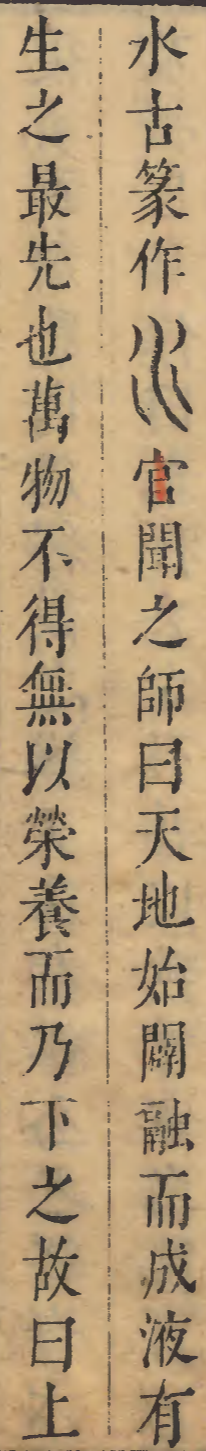 水古篆作𡿭官聞之師曰天地始闢融而成液有
生之最先也萬物不得無以榮養而乃下之故曰上